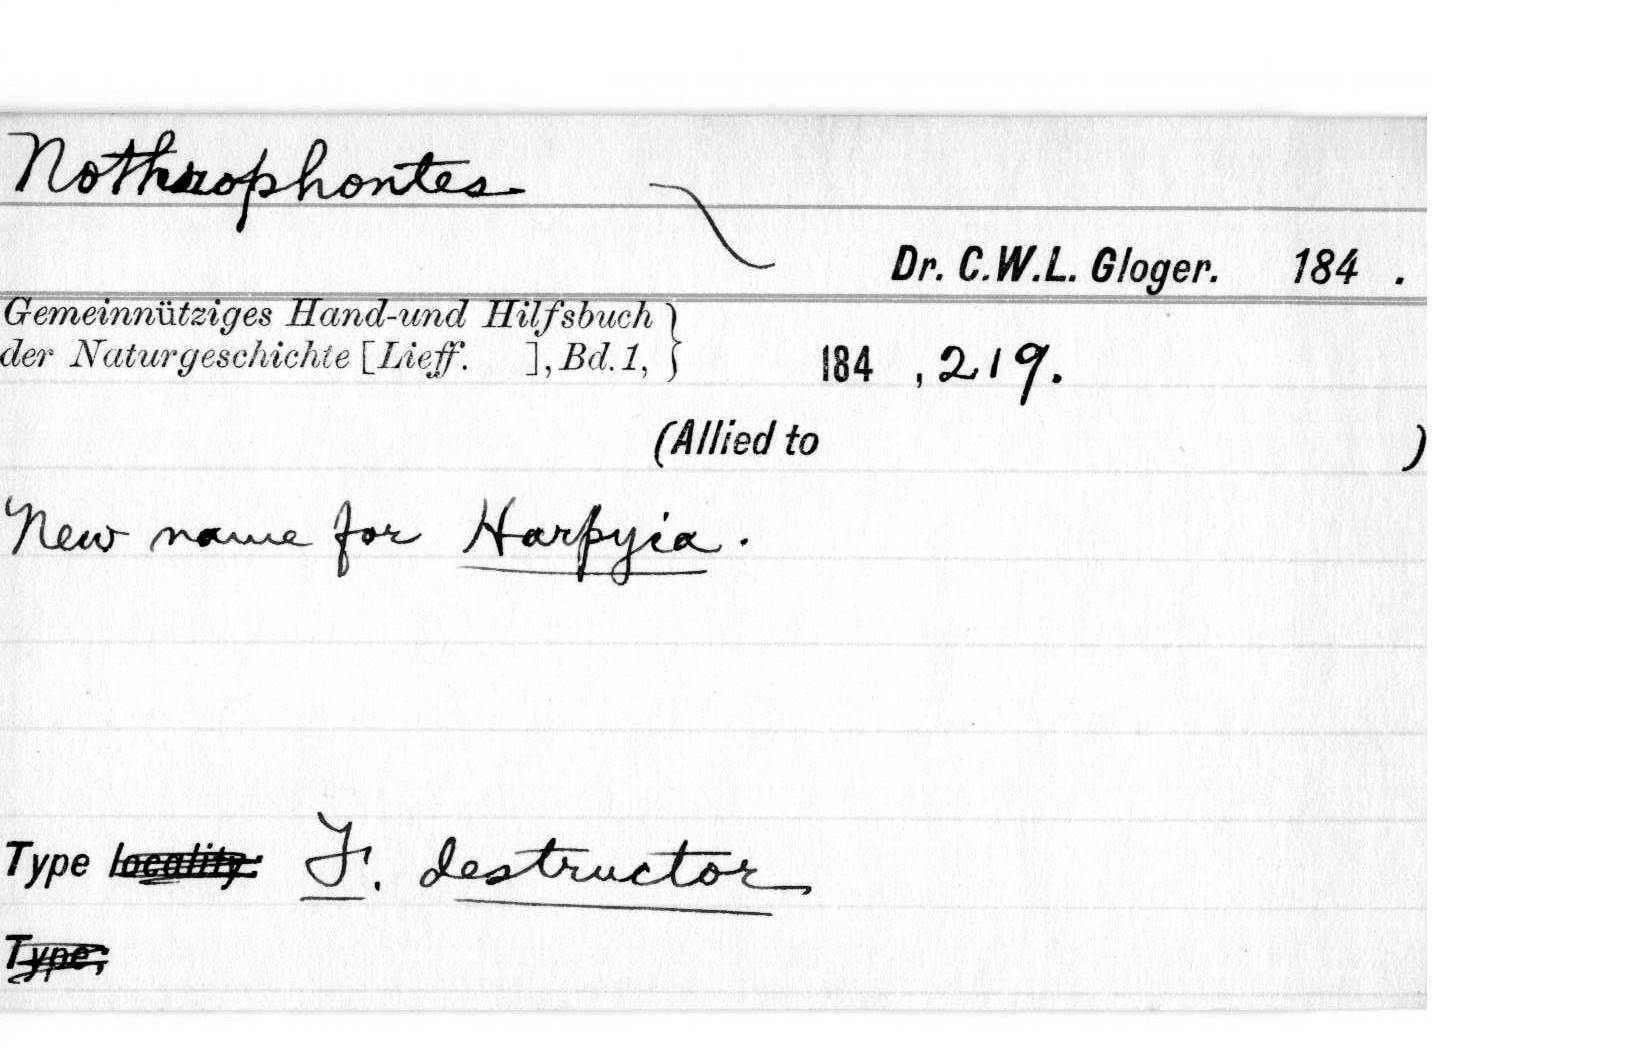 Nothrophontes
Dr. C.W.L. Gloger. 184 .
Gemeinnütziges Hand-und Hilfsbuch
der Naturgeschichte [Lieff. ], Bd. 1, } 184 , 219.
(Allied to )
New name for Harpyia.
Type locality: F. destructor
Type: